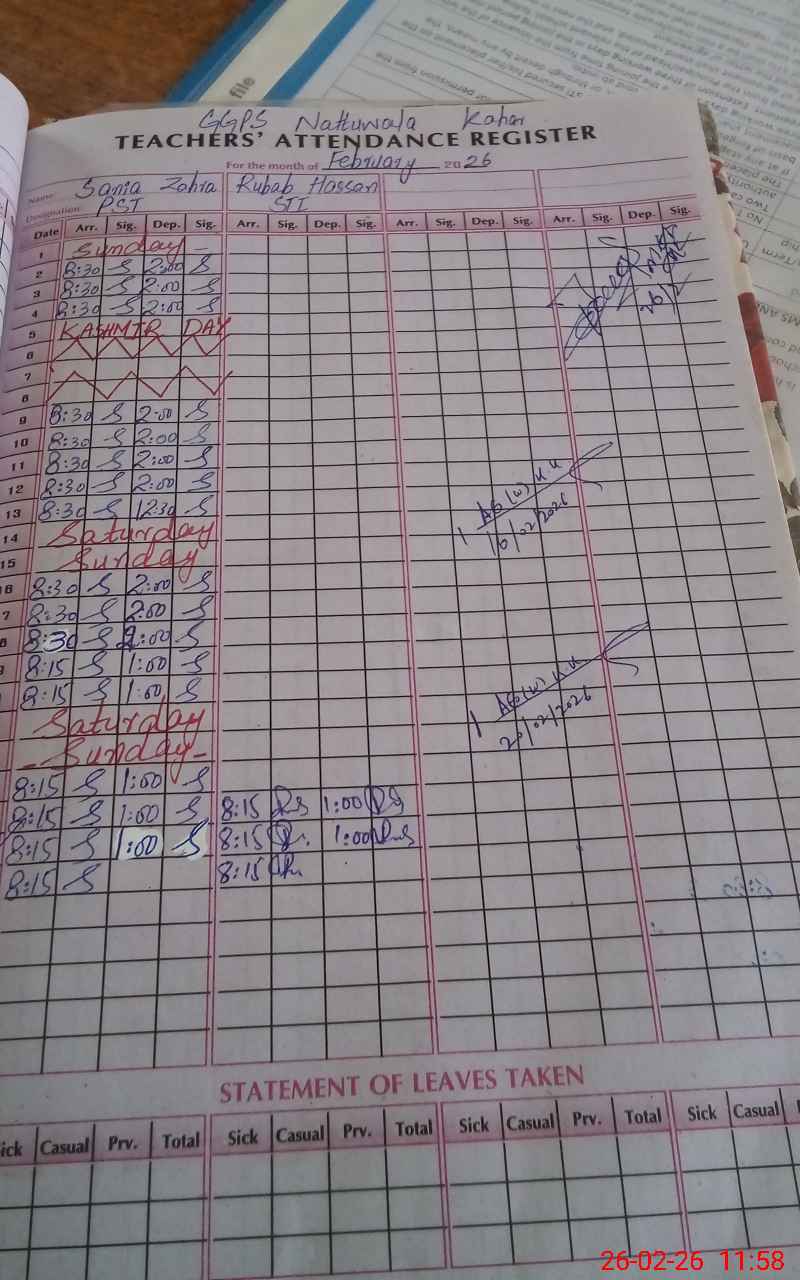 GGPS Nattuwala Kahar
TEACHERS' ATTENDANCE REGISTER
For the month of February 2026
Name: Sania Zahra Rubab Hassan
Designation: PST
Date Arr. Sig. Dep. Sig. Arr. Sig. Dep. Sig. Arr. Sig. Dep. Sig. Arr. Sig. Dep. Sig.
1 Sunday -
2 8:30 S 2:00 S
3 8:30 S 2:00 S
4 8:30 S 2:00 S
5 KASHMIR DAY
6
7
8
9 8:30 S 2:00 S
10 8:30 S 2:00 S
11 8:30 S 2:00 S
12 8:30 S 2:00 S
13 8:30 S 12:30 S
14 Saturday
15 Sunday
8:30 S 2:00 S
7 8:30 S 2:00 S
8:30 S 2:00 S
8:15 S 1:00 S
8:15 S 1:00 S
Saturday
- Sunday -
8:15 S 1:00 S
8:15 S 1:00 S 8:15 Rs 1:00 Rs
8:15 S 1:00 S 8:15 1:00
8:15 S 8:15
16/02/2026
20/02/2026
STATEMENT OF LEAVES TAKEN
ick Casual Prv. Total Sick Casual Prv. Total Sick Casual Prv. Total Sick Casual
file
26-02-26 11:58